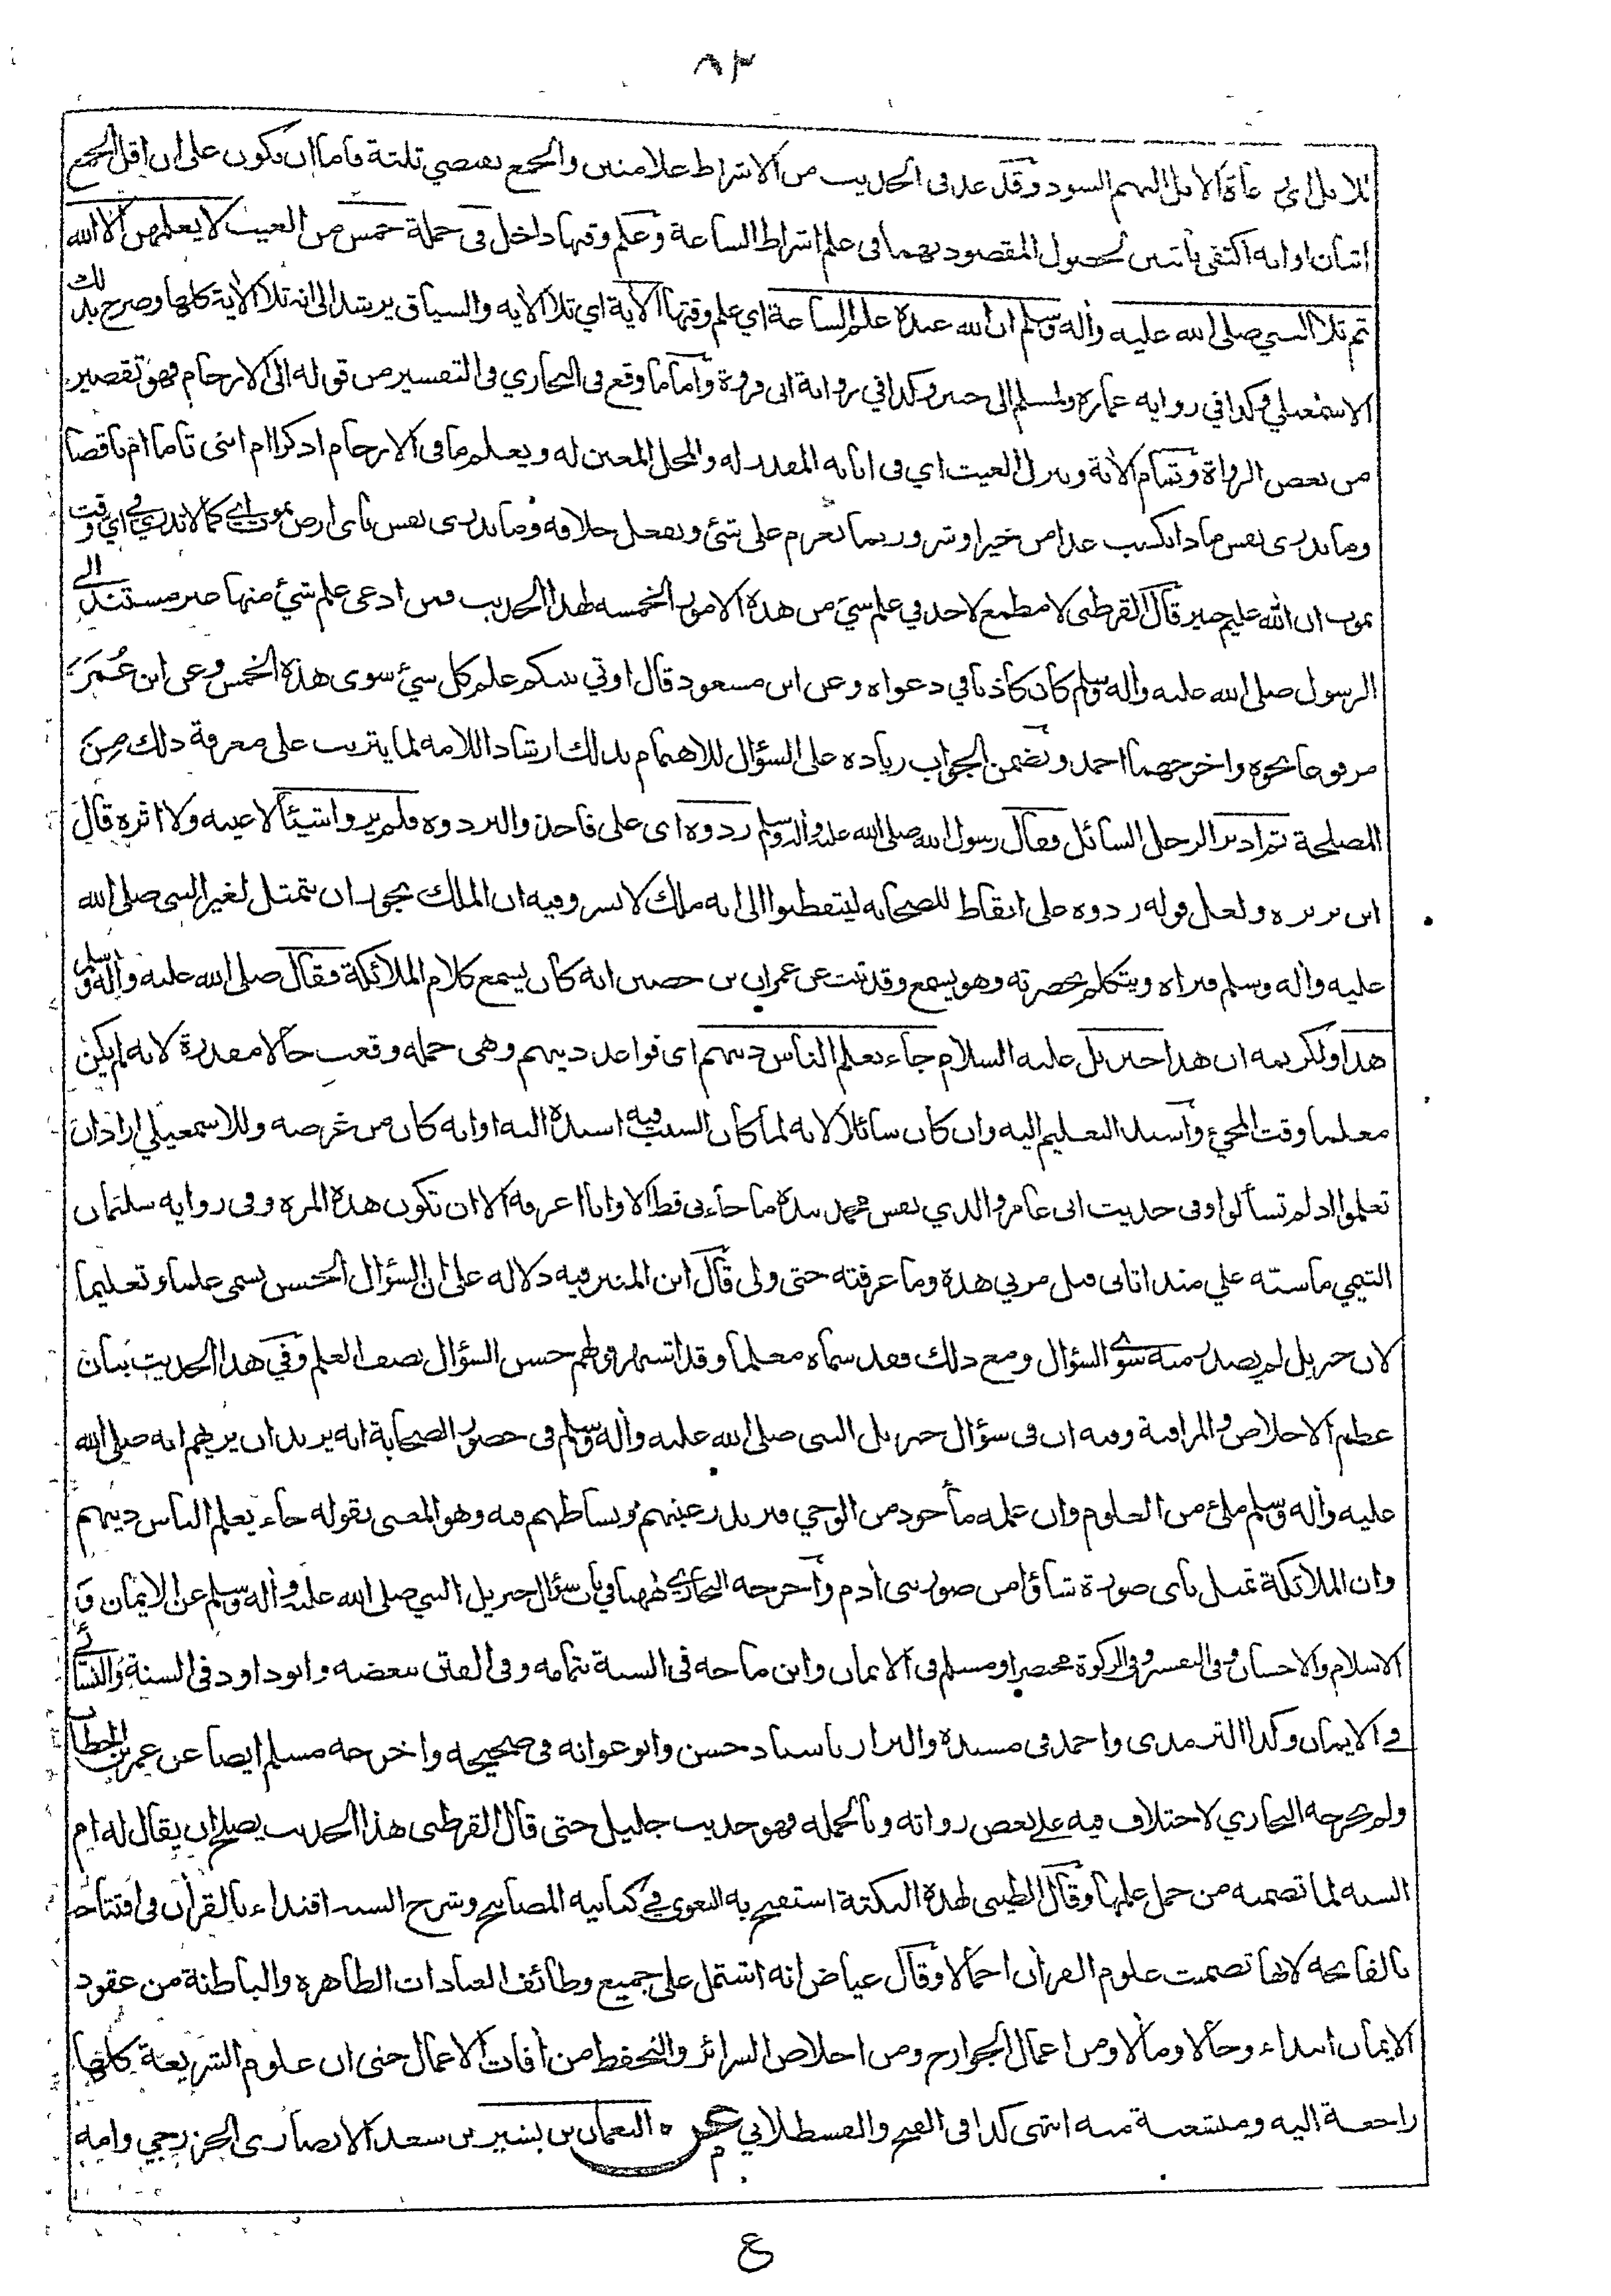 ٨٣
للابل اي رعاة الابل البهم السود وقد عد في الحديث من الاشراط علامتين والجمع يقتضي ثلثة فاما ان يكون على ان اقل الجمع
اثنان او انه اكتفى باثنين لحصول المقصود بهما في علم اشراط الساعة وعلم وقتها داخل في جملة خمس من الغيب لا يعلمهن الا الله
ثم تلا النبي صلى الله عليه وآله وسلم ان الله عنده علم الساعة اي علم وقتها الآية اي تلا الآية والسياق يرشد الى انه تلا الآية كلها وصرح بذلك
الاسمعيلي وكذا في رواية عمارة ولمسلم الى خبير وكذا في رواية ابي فروة واما ما وقع في البخاري في التفسير من قوله الى الارحام فهو تقصير
من بعض الرواة وتمام الآية وينزل الغيث اي في ابانه المقدر له والمحل المعين له ويعلم ما في الارحام اذكرا ام انثى تاما ام ناقصا
وما تدري نفس ماذا تكسب غدا من خير او شر وربما تعزم على شئ وتفعل خلافه وما تدري نفس باي ارض تموت اي كما لا تدري في اي وقت
تموت ان الله عليم خبير قال القرطبي لا مطمع لاحد في علم شئ من هذه الامور الخمسه لهذا الحديث فمن ادعى علم شئ منها غير مستند الى
الرسول صلى الله عليه وآله وسلم كان كاذبا في دعواه وعن ابن مسعود قال اوتي نبيكم علم كل شئ سوى هذه الخمس وعن ابن عُمَرَ
مرفوعا نحوه واخرجهما احمد وتضمن الجواب زياده على السؤال للاهتمام بذلك ارشادا للامه لما يترتب على معرفة ذلك مِنَ
المصلحة ثم ادبر الرجل السائل فقال رسول الله صلى الله عليه وآله وسلم ردوه اي علي فاخذوا ليردوه فلم يروا شيئا لا عينه ولا اثره قال
ابن بريره ولعل قوله ردوه علي ايقاظ للصحابه ليتفطنوا الى انه ملك لا بشر وفيه ان الملك يجوز ان يتمثل لغير النبي صلى الله
عليه وآله وسلم فيراه ويتكلم بحضرته وهو يسمع وقد ثبت عن عمران بن حصين انه كان يسمع كلام الملائكة فقال صلى الله عليه وآله وسلم
هذا ولكريمه ان هذا جبريل عليه السلام جاء يعلم الناس دينهم اي قواعد دينهم وهي جمله وقعت حالا مقدرة لانه لم يكن
معلما وقت المجئ واسند التعليم اليه وان كان سائلا لانه لما كان السبب فيه اسنده اليه او انه كان من غرضه وللاسمعيلي اراد ان
تعلموا اذ لم تسألوا وفي حديث ابي عامر والذي نفس محمد بيده ما جاءني قط الا وانا اعرفه الا ان تكون هذه المره وفي رواية سليمان
التيمي ما شبه علي منذ اتاني قبل مرتي هذه وما عرفته حتى ولى قال ابن المنير فيه دلاله على ان السؤال الحسن يسمى علما وتعليما
لان جبريل لم يصدر منه سوى السؤال ومع ذلك فقد سماه معلما وقد اشتهر قولهم حسن السؤال نصف العلم وفي هذا الحديث بيان
عظم الاخلاص والمراقبة وفيه ان في سؤال جبريل النبي صلى الله عليه وآله وسلم في حضور الصحابة انه يريد ان يريهم انه صلى الله
عليه وآله وسلم ملئ من العلوم وان علمه مأخوذ من الوحي فتزيد رغبتهم ونشاطهم فيه وهو المعني بقوله جاء يعلم الناس دينهم
وان الملائكة تمثل باي صورة شاؤا من صور بني آدم واخرجه البخاري ههنا في باب سؤال جبريل النبي صلى الله عليه وآله وسلم عن الايمان و
الاسلام والاحسان وفي التفسير وفي الزكوة مختصرا ومسلم في الايمان وابن ماجه في السنة بتمامه وفي الفتن ببعضه وابو داود في السنة والنسائي
في الايمان وكذا الترمذي واحمد في مسنده والبزار باسناد حسن وابو عوانه في صحيحه واخرجه مسلم ايضا عن عمر بن الخطاب
ولم يخرجه البخاري لاختلاف فيه على بعض رواته وبالجمله فهو حديث جليل حتى قال القرطبي هذا الحديث يصلح ان يقال له ام
السنه لما تضمنه من جمل علمها وقال الطيبي لهذه النكتة استفتح به البغوي في كتابيه المصابيح وشرح السنه اقتداء بالقرآن في افتتاحه
بالفاتحه لانها تضمنت علوم القرآن اجمالا وقال عياض انه اشتمل على جميع وظائف العبادات الظاهره والباطنة من عقود
الايمان ابتداء وحالا ومآلا ومن اعمال الجوارح ومن اخلاص السرائر والتحفظ من آفات الاعمال حتى ان علوم الشريعة كلها
راجعة اليه ومتشعبة منه انتهى كذا في الفتح والقسطلاني عن النعمان بن بشير بن سعد الانصاري الخزرجي وامه
ع